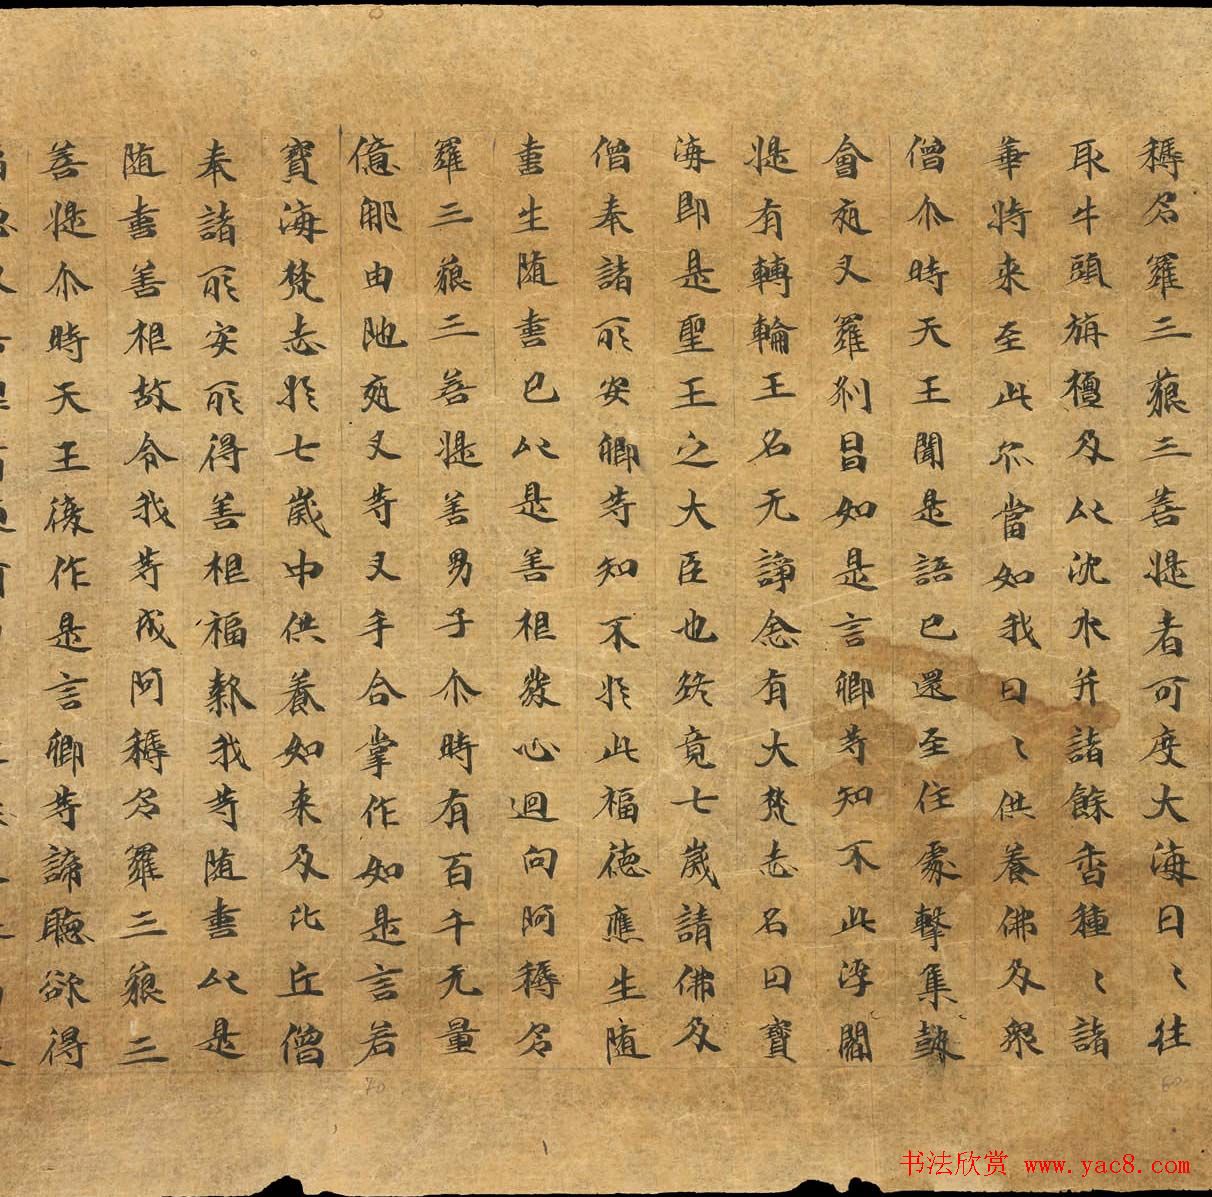 耨多羅三藐三菩提者可度大海日〻往
取牛頭旃檀及以沈水并諸餘香種〻諸
華持來至此尒當如我日〻供養佛及眾
僧尒時天王聞是語已還至住處擊集鼓
會夜叉羅刹昌如是言卿等知不此浮閻
提有轉輪王名无諍念有大梵志名曰寶
海即是聖王之大臣也終竟七歲請佛及
僧奉諸所安卿等知不於此福德應生隨
喜生隨喜已以是善根發心迴向阿耨多
羅三藐三菩提善男子尒時有百千无量
億那由他夜叉等叉手合掌作如是言若
寶海梵志於七歲中供養如來及比丘僧
奉諸所安所得善根福報我等隨喜以是
隨喜善根故令我等成阿耨多羅三藐三
菩提尒時天王後作是言卿等諦聽欲得
书法欣赏 www.yac8.com